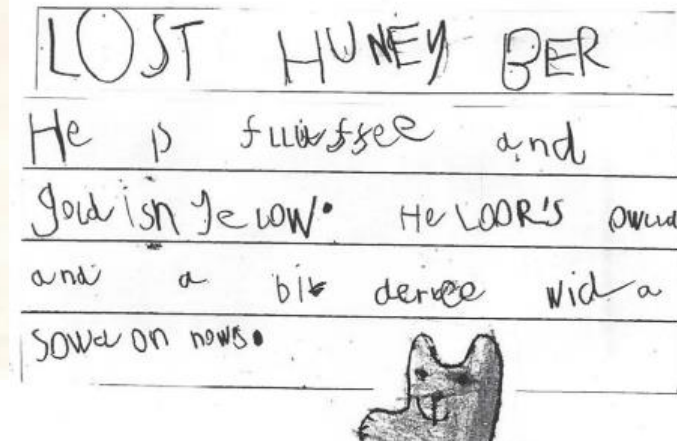 LOST HUNEY BER
He is fluffee and
gold ish yelow. He LOOR'S
and a bit dertee wid a
sowd on nows.